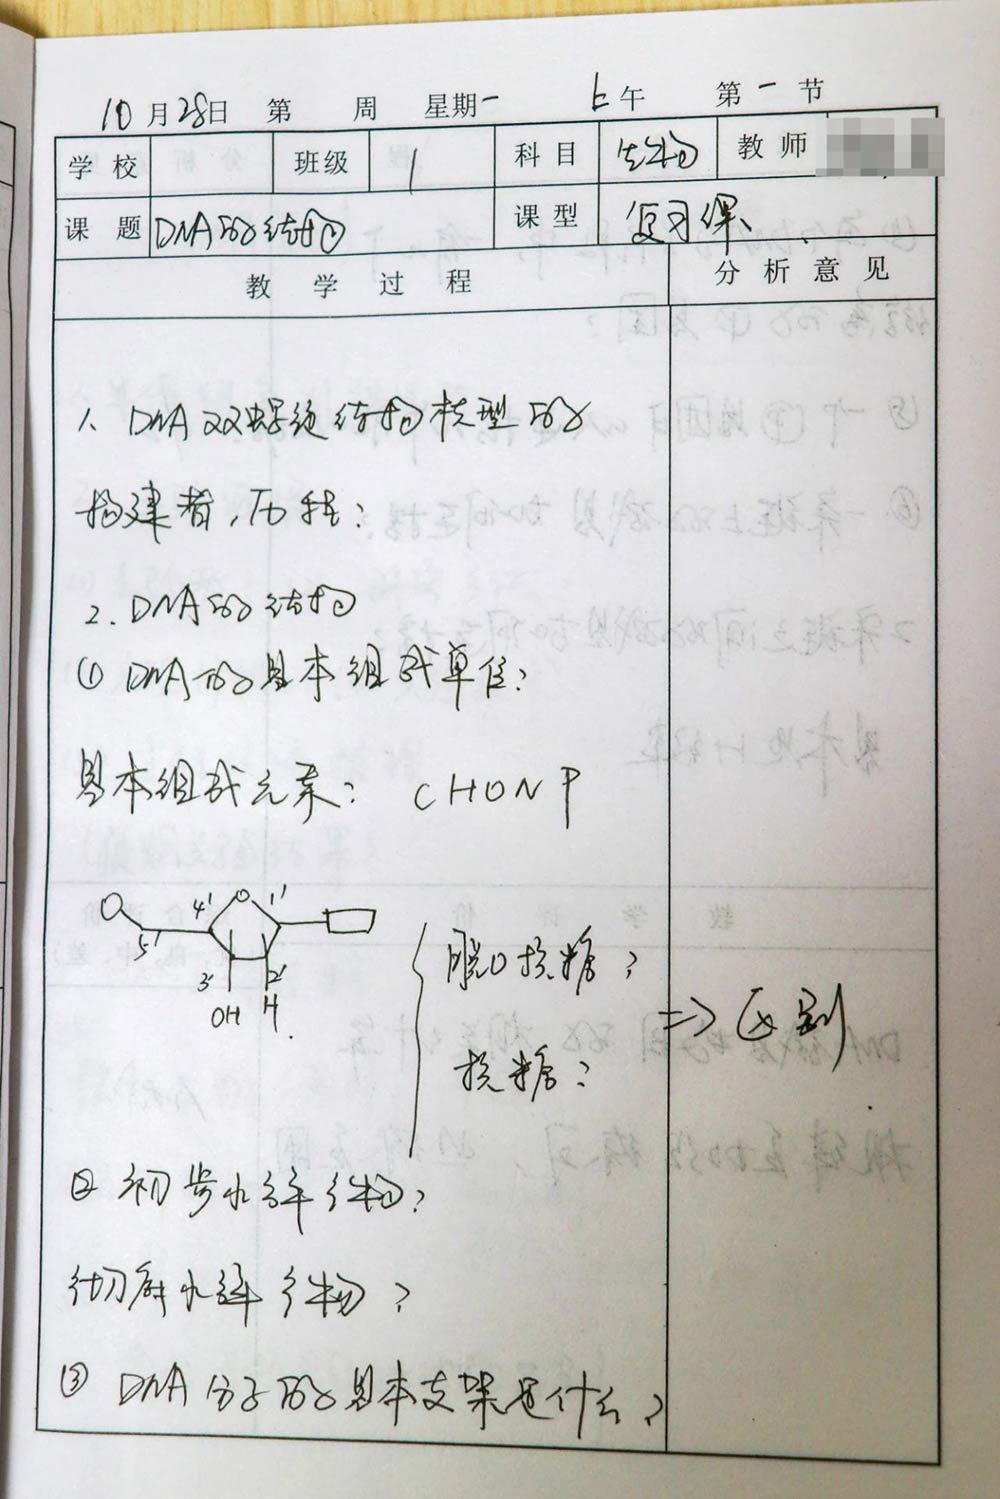 10月28日 第 周 星期一 上午 第一节
学校 班级 1 科目 生物 教师
课题 DNA的结构 课型 复习课
教学过程 分析意见
1. DNA双螺旋结构模型的
构建者,历程?
2. DNA的结构
① DNA的基本组成单位?
基本组成元素? CHONP
O 1'
4'
5'
3' 2'
OH H
脱O核糖?
核糖?
=> 区别
② 初步水解产物?
彻底水解产物?
③ DNA分子的基本支架是什么?